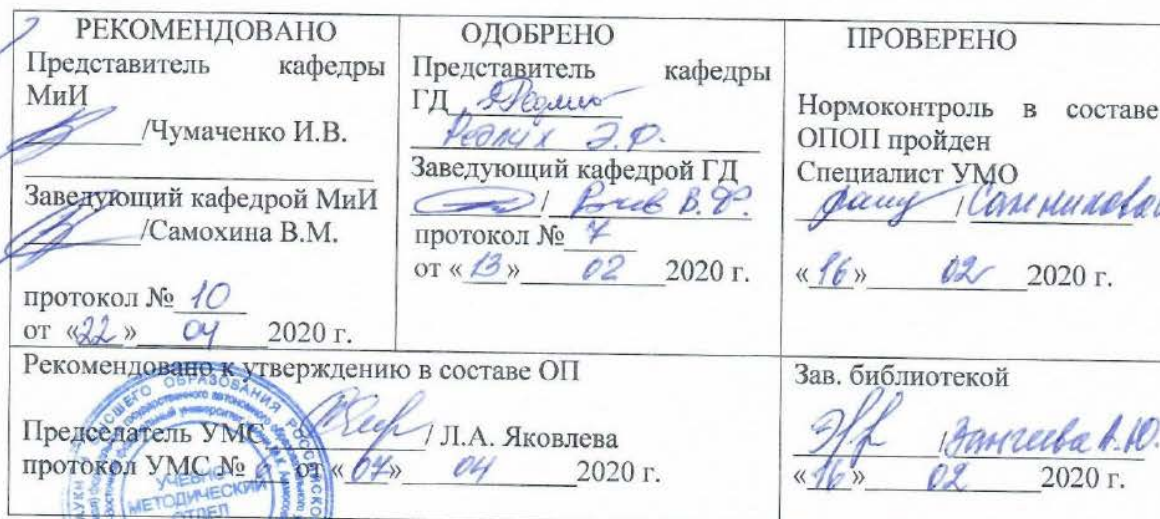 РЕКОМЕНДОВАНО
Представитель кафедры
МиИ
/Чумаченко И.В.
Заведующий кафедрой МиИ
/Самохина В.М.
протокол № 10
от «22» 04 2020 г.
ОДОБРЕНО
Представитель кафедры
ГД
Редлих Э.Ф.
Заведующий кафедрой ГД
/ В.Ф.
протокол № 7
от «13» 02 2020 г.
ПРОВЕРЕНО
Нормоконтроль в составе
ОПОП пройден
Специалист УМО
/
«16» 02 2020 г.
Рекомендовано к утверждению в составе ОП
Председатель УМС / Л.А. Яковлева
протокол УМС № 6 от «07» 04 2020 г.
УЧЕБНО
МЕТОДИЧЕСКИЙ
ОТДЕЛ
Зав. библиотекой
/ А.Ю.
«16» 02 2020 г.